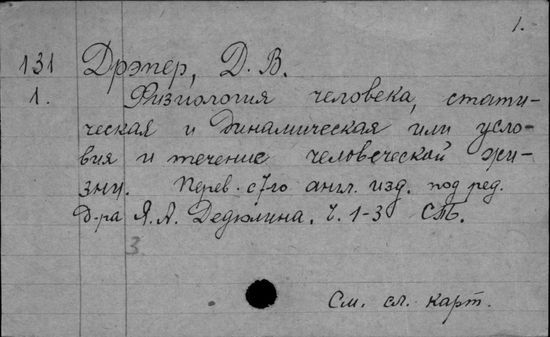 1.
131 Дрэпер, Д. В.
1. Физиология человека, стати-
ческая и динамическая или усло-
вия и течение человеческой жи-
зни. Перев. с 7го англ. изд. под ред.
Д-ра Я. А. Дедюлина. Ч. 1-3 СПб.
3.
См. сл. карт.